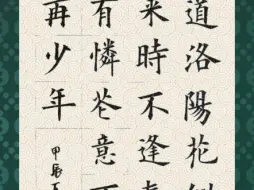 道洛陽花似
来時不逢春
有憐花意而
再少年
甲辰